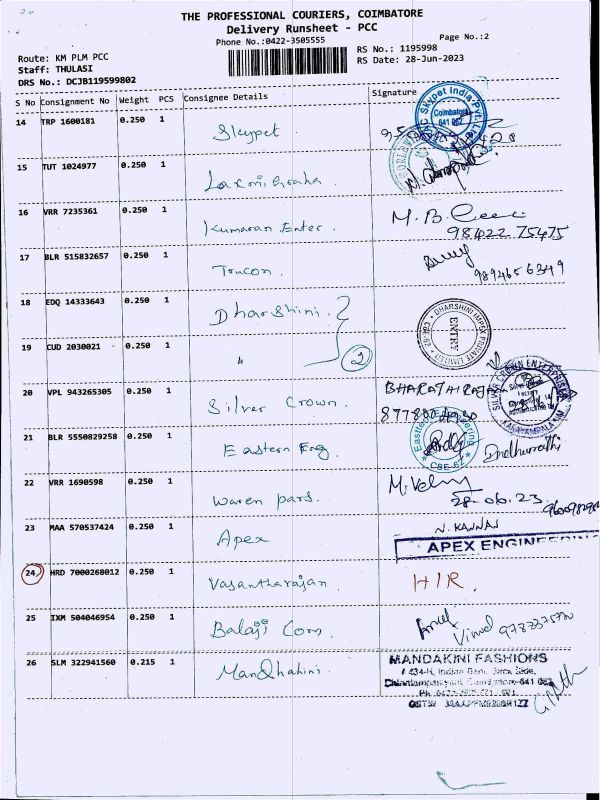 THE PROFESSIONAL COURIERS, COIMBATORE
Delivery Runsheet - PCC
Phone No.:0422-3505555
Page No.:2
Route: KM PLM PCC
RS No.: 1195998
Staff: THULASI
RS Date: 28-Jun-2023
DRS No.: DCJB119599802
S No Consignment No Weight PCS Consignee Details Signature
14 TRP 1600181 0.250 1 Skypet
Skypet India Pvt. Ltd
Coimbatore
641 062
15 TUT 1024977 0.250 1 Laxmi Graha
16 VRR 7235361 0.250 1 Kumaran Enter. M.B.
98422 75475
17 BLR 515832657 0.250 1 Trucon.
9894656349
18 EDQ 14333643 0.250 1 Dharshini.
DHARSHINI IMPEX PRIVATE LIMITED
ENTRY
CBE-62
19 CUD 2030021 0.250 1 " 2
20 VPL 943265305 0.250 1 Silver Crown. BHARATHIRAJA
SILVER CROWN ENTERPRISES
KALAYAMPALAYAM
21 BLR 5550829258 0.250 1 Eastern Eng.
Engineering
CBE-62
22 VRR 1690598 0.250 1 Waren pars. M.
28-06.23
23 MAA 570537424 0.250 1 Apex N. KANNAN
APEX ENGINEERING
24 HRD 7000268012 0.250 1 Vasantharajan H/R.
25 IXM 504046954 0.250 1 Balaji Com Vinod
26 SLM 322941560 0.215 1 Mandhakini.
MANDAKINI FASHIONS